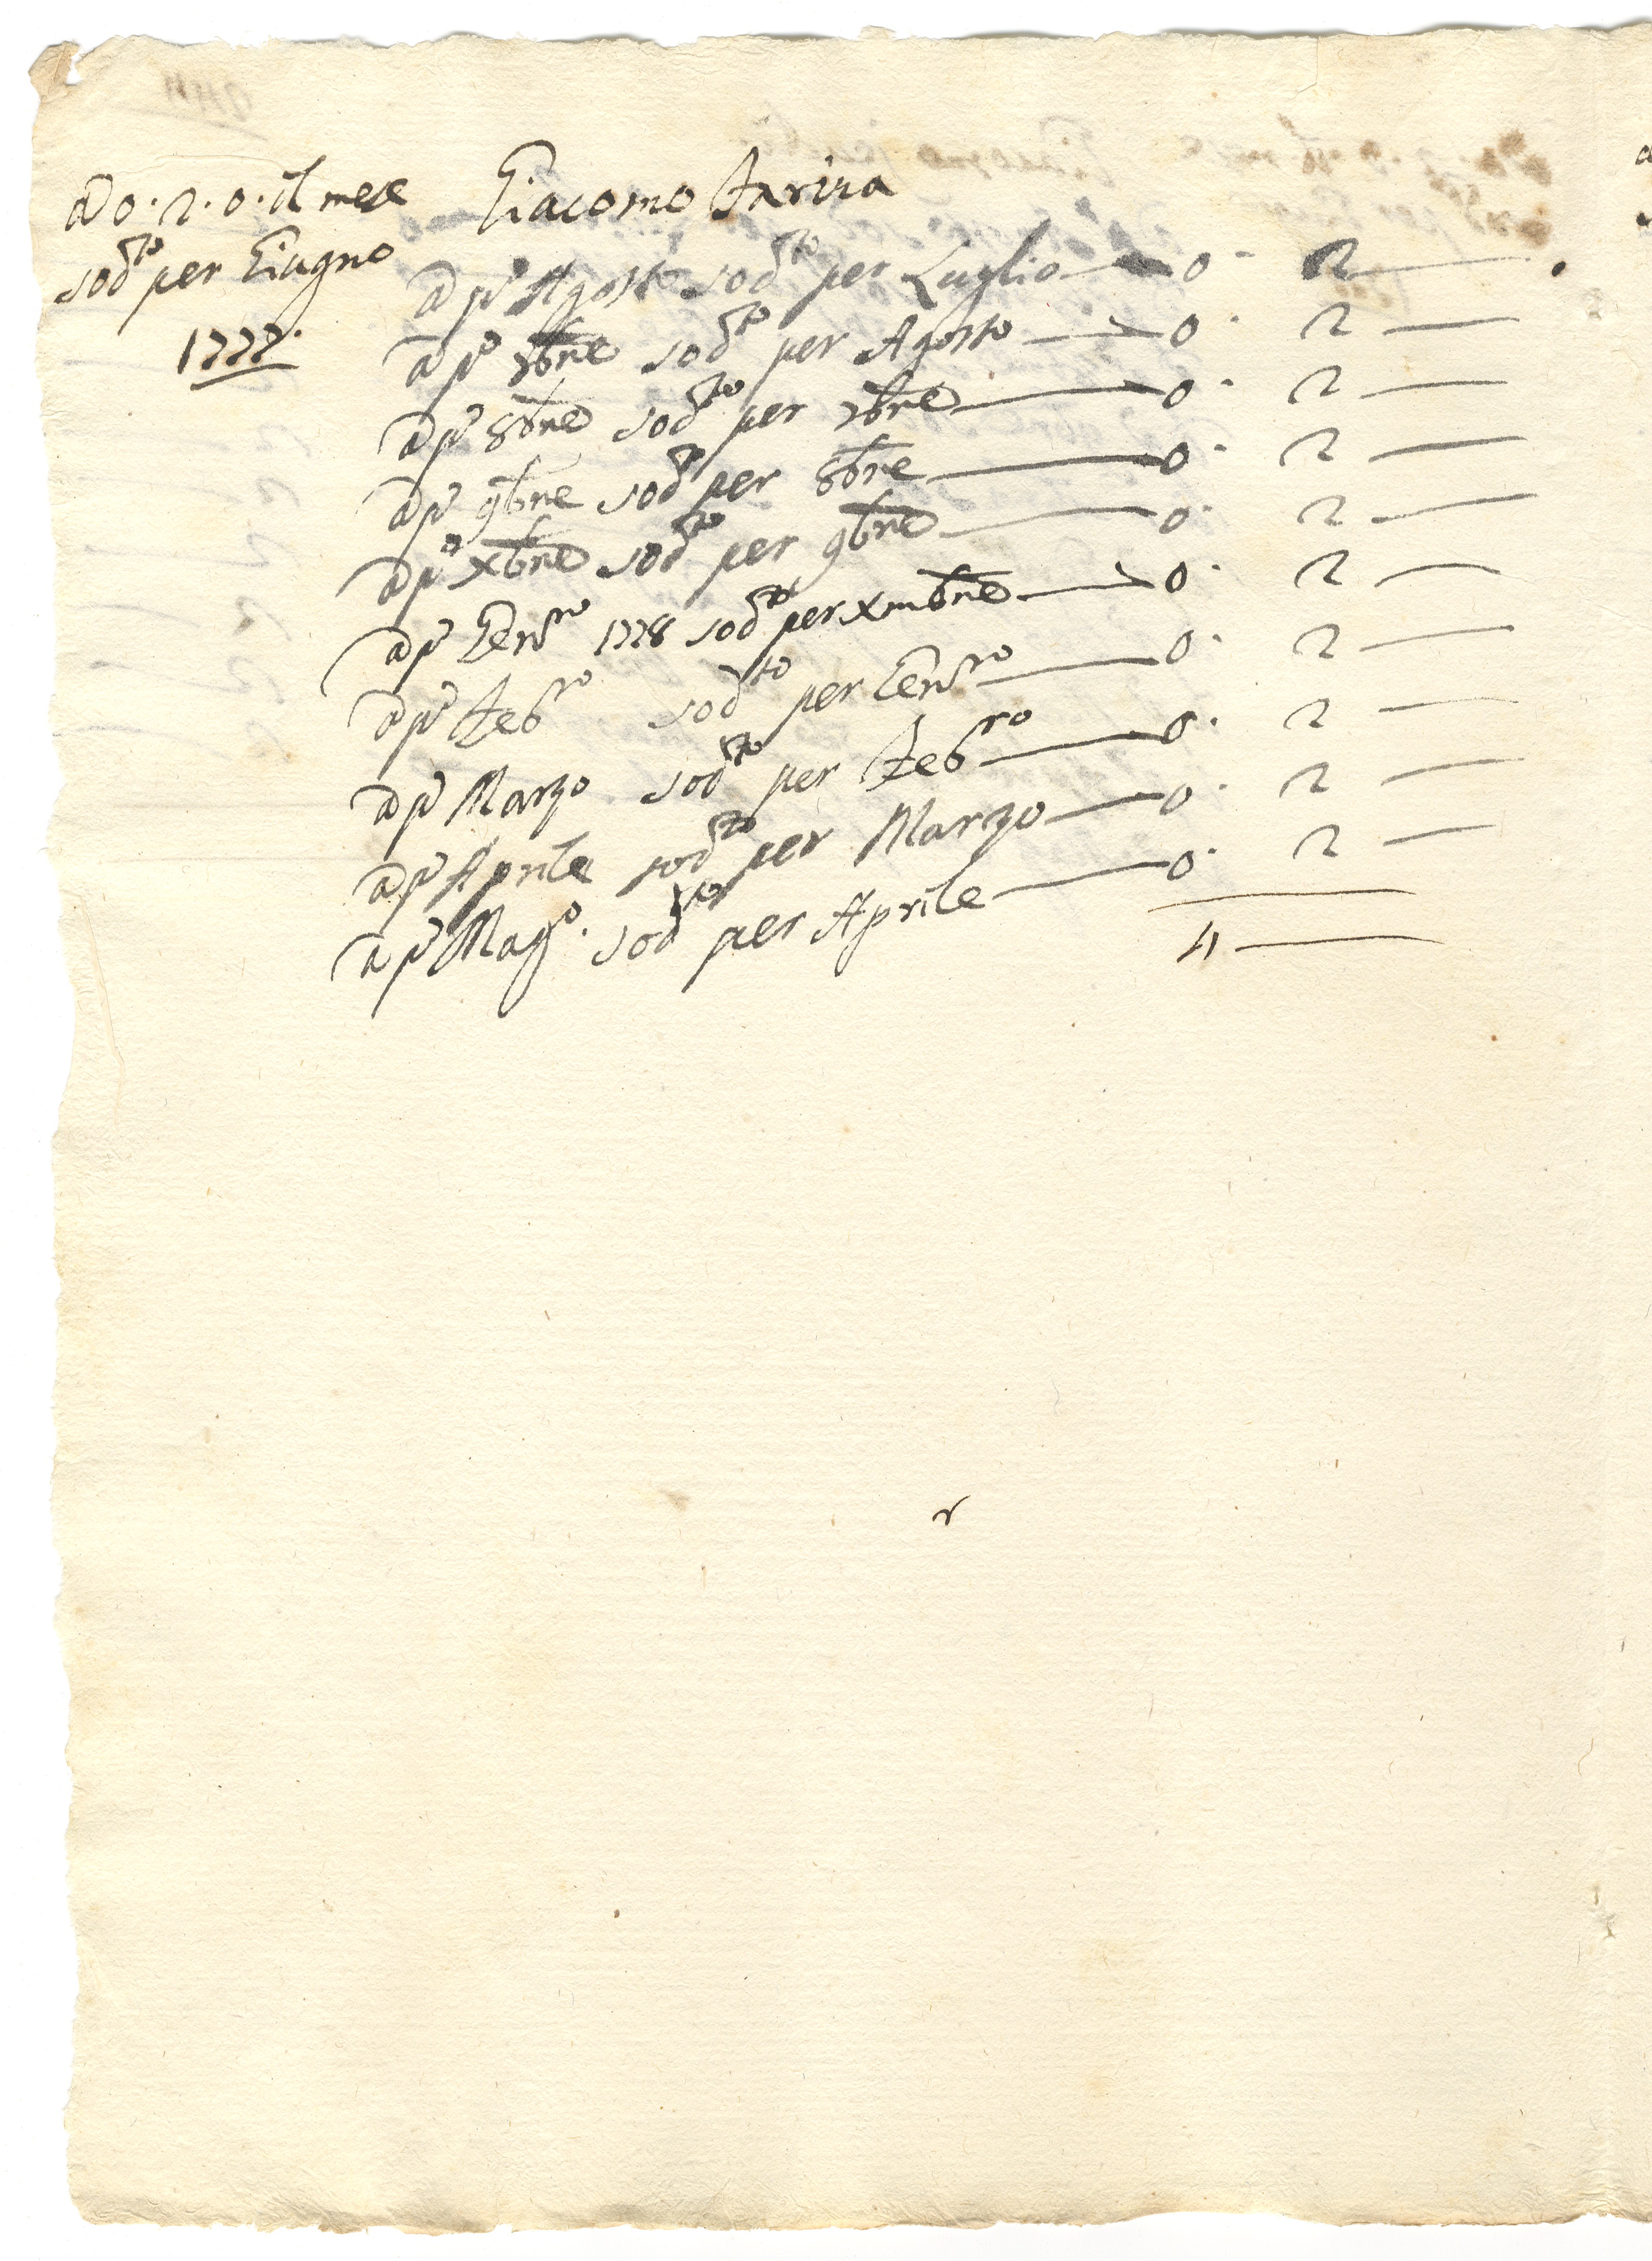 a D 0. 2. 0. il mese
sod.to per Giugno
1777.
Giacomo Farina
a p.o Agosto sod.to per Luglio — 0. 2 —
a p.o 7bre sod.to per Agosto — 0. 2 —
a p.o 8bre sod.to per 7bre — 0. 2 —
a p.o 9bre sod.to per 8bre — 0. 2 —
a p.o xbre sod.to per 9bre — 0. 2 —
a p.o Gen.ro 1778 sod.to per xmbre — 0. 2 —
a p.o Feb.ro sod.to per Gen.ro — 0. 2 —
a p.o Marzo sod.to per Feb.ro — 0. 2 —
a p.o Aprile sod.to per Marzo — 0. 2 —
a p.o Mag.o sod.to per Aprile — 0. 2 —